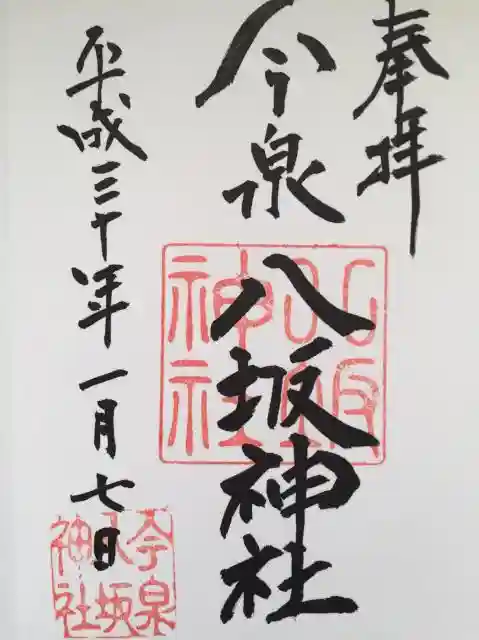 奉拝
今泉八坂神社
平成三十年一月七日
八坂神社
今泉八坂神社